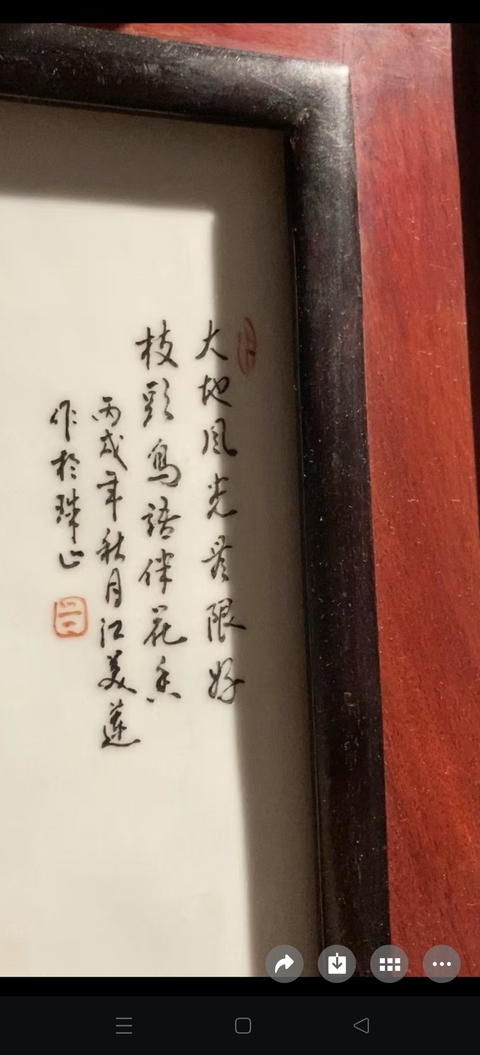 大地风光无限好
枝頭鳥語伴花香
丙戌年秋月江美莲
作於珠山